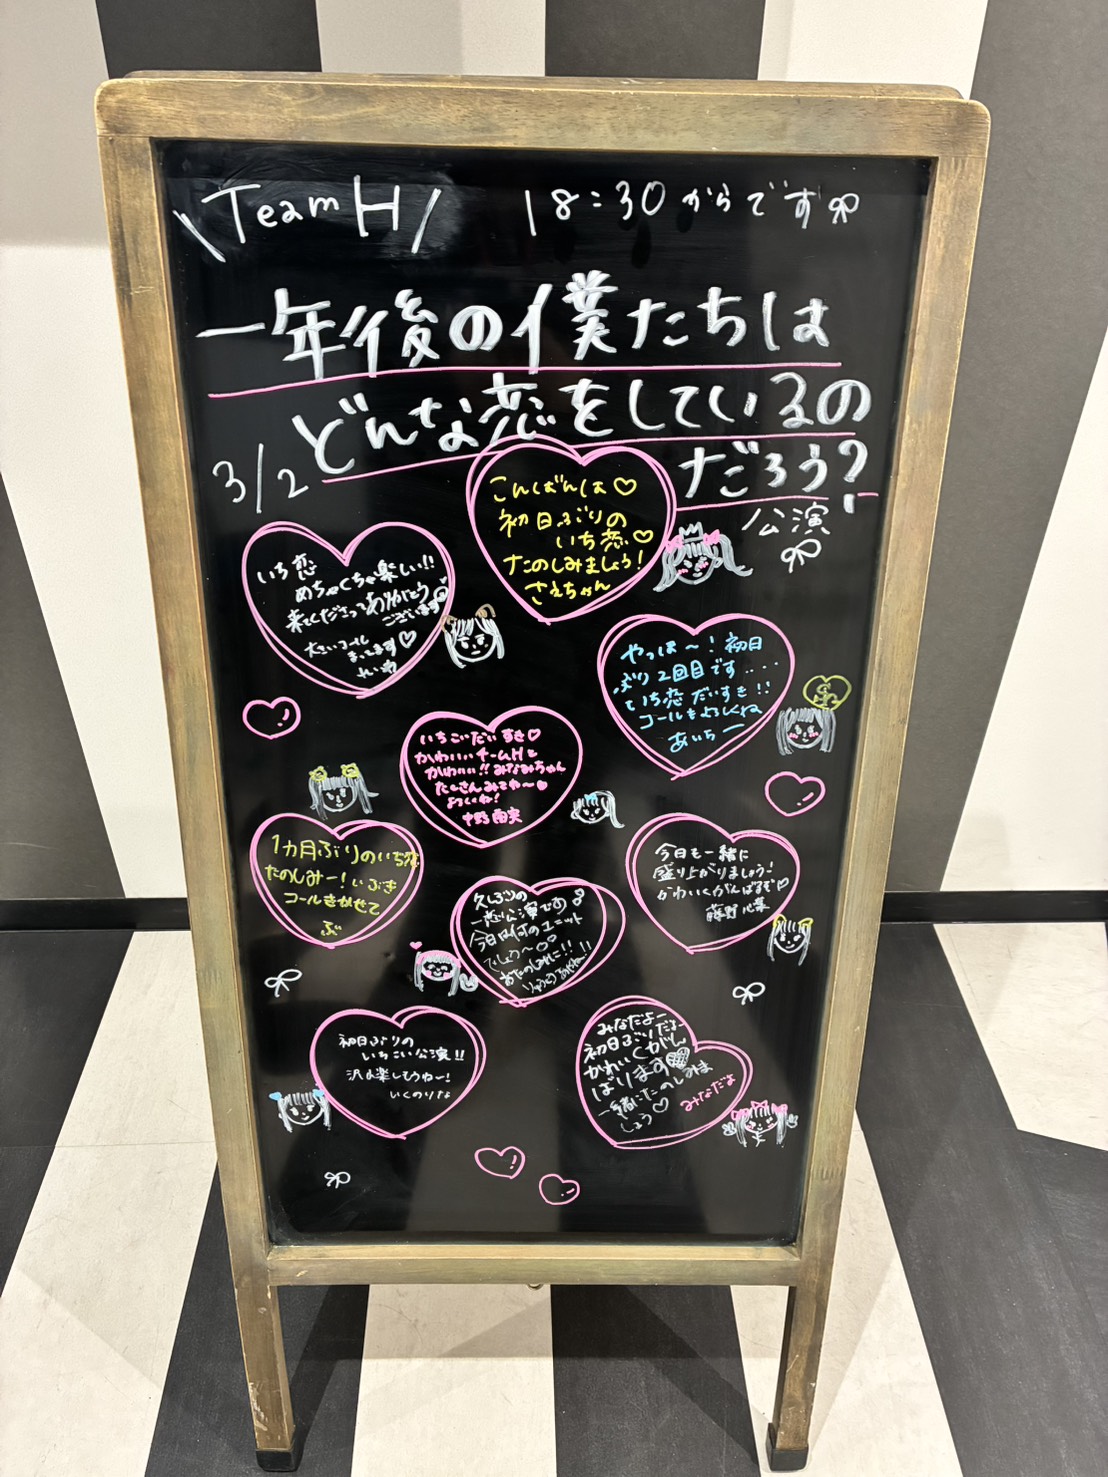 \Team H/
18:30からです
一年後の僕たちは
どんな恋をしているの
だろう?
3/2
公演
こんばんは♡
初日ぶりの
いち恋♡
たのしみましょう!
さえちゃん
いち恋
めちゃくちゃ楽しい!!
来てくださってありがとう
ございます
大きいコール
まってます♡
やっほ〜!初日
ぶり2回目です....
いち恋だいすき!!
コールもよろしくね
あいちー
いちごだいすき♡
かわいいチームHと
かわいい!!みなみちゃん
たくさんみてね〜♥
よろしくね!
中野 南実
1カ月ぶりのいち恋
たのしみー!いぶき
コールきかせて
ぶ
今日も一緒に
盛り上がりましょう!
かわいくがんばるぞ♡
藤野 心葉
久しぶりの
一恋公演です
今日は何のユニット
でしょう〜
おたのしみに!!
初日ぶりの
いちこい公演!!
沢山楽しもうねー!
いくのりな
みなだよー
初日ぶりだよー
かわいくがん
ばります
一緒にたのしみま
しょう♡
みなだよ